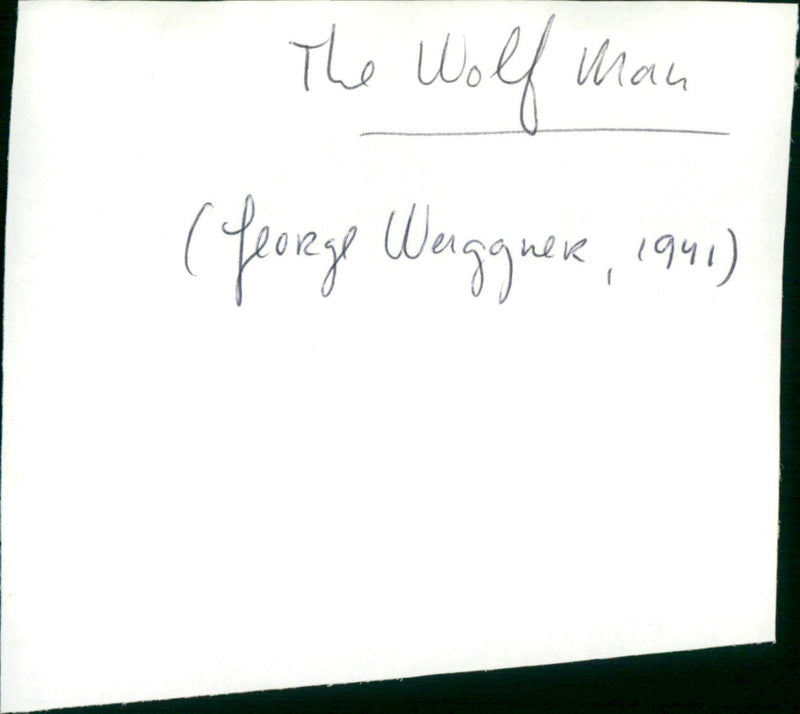 The Wolf Man
(George Waggner, 1941)